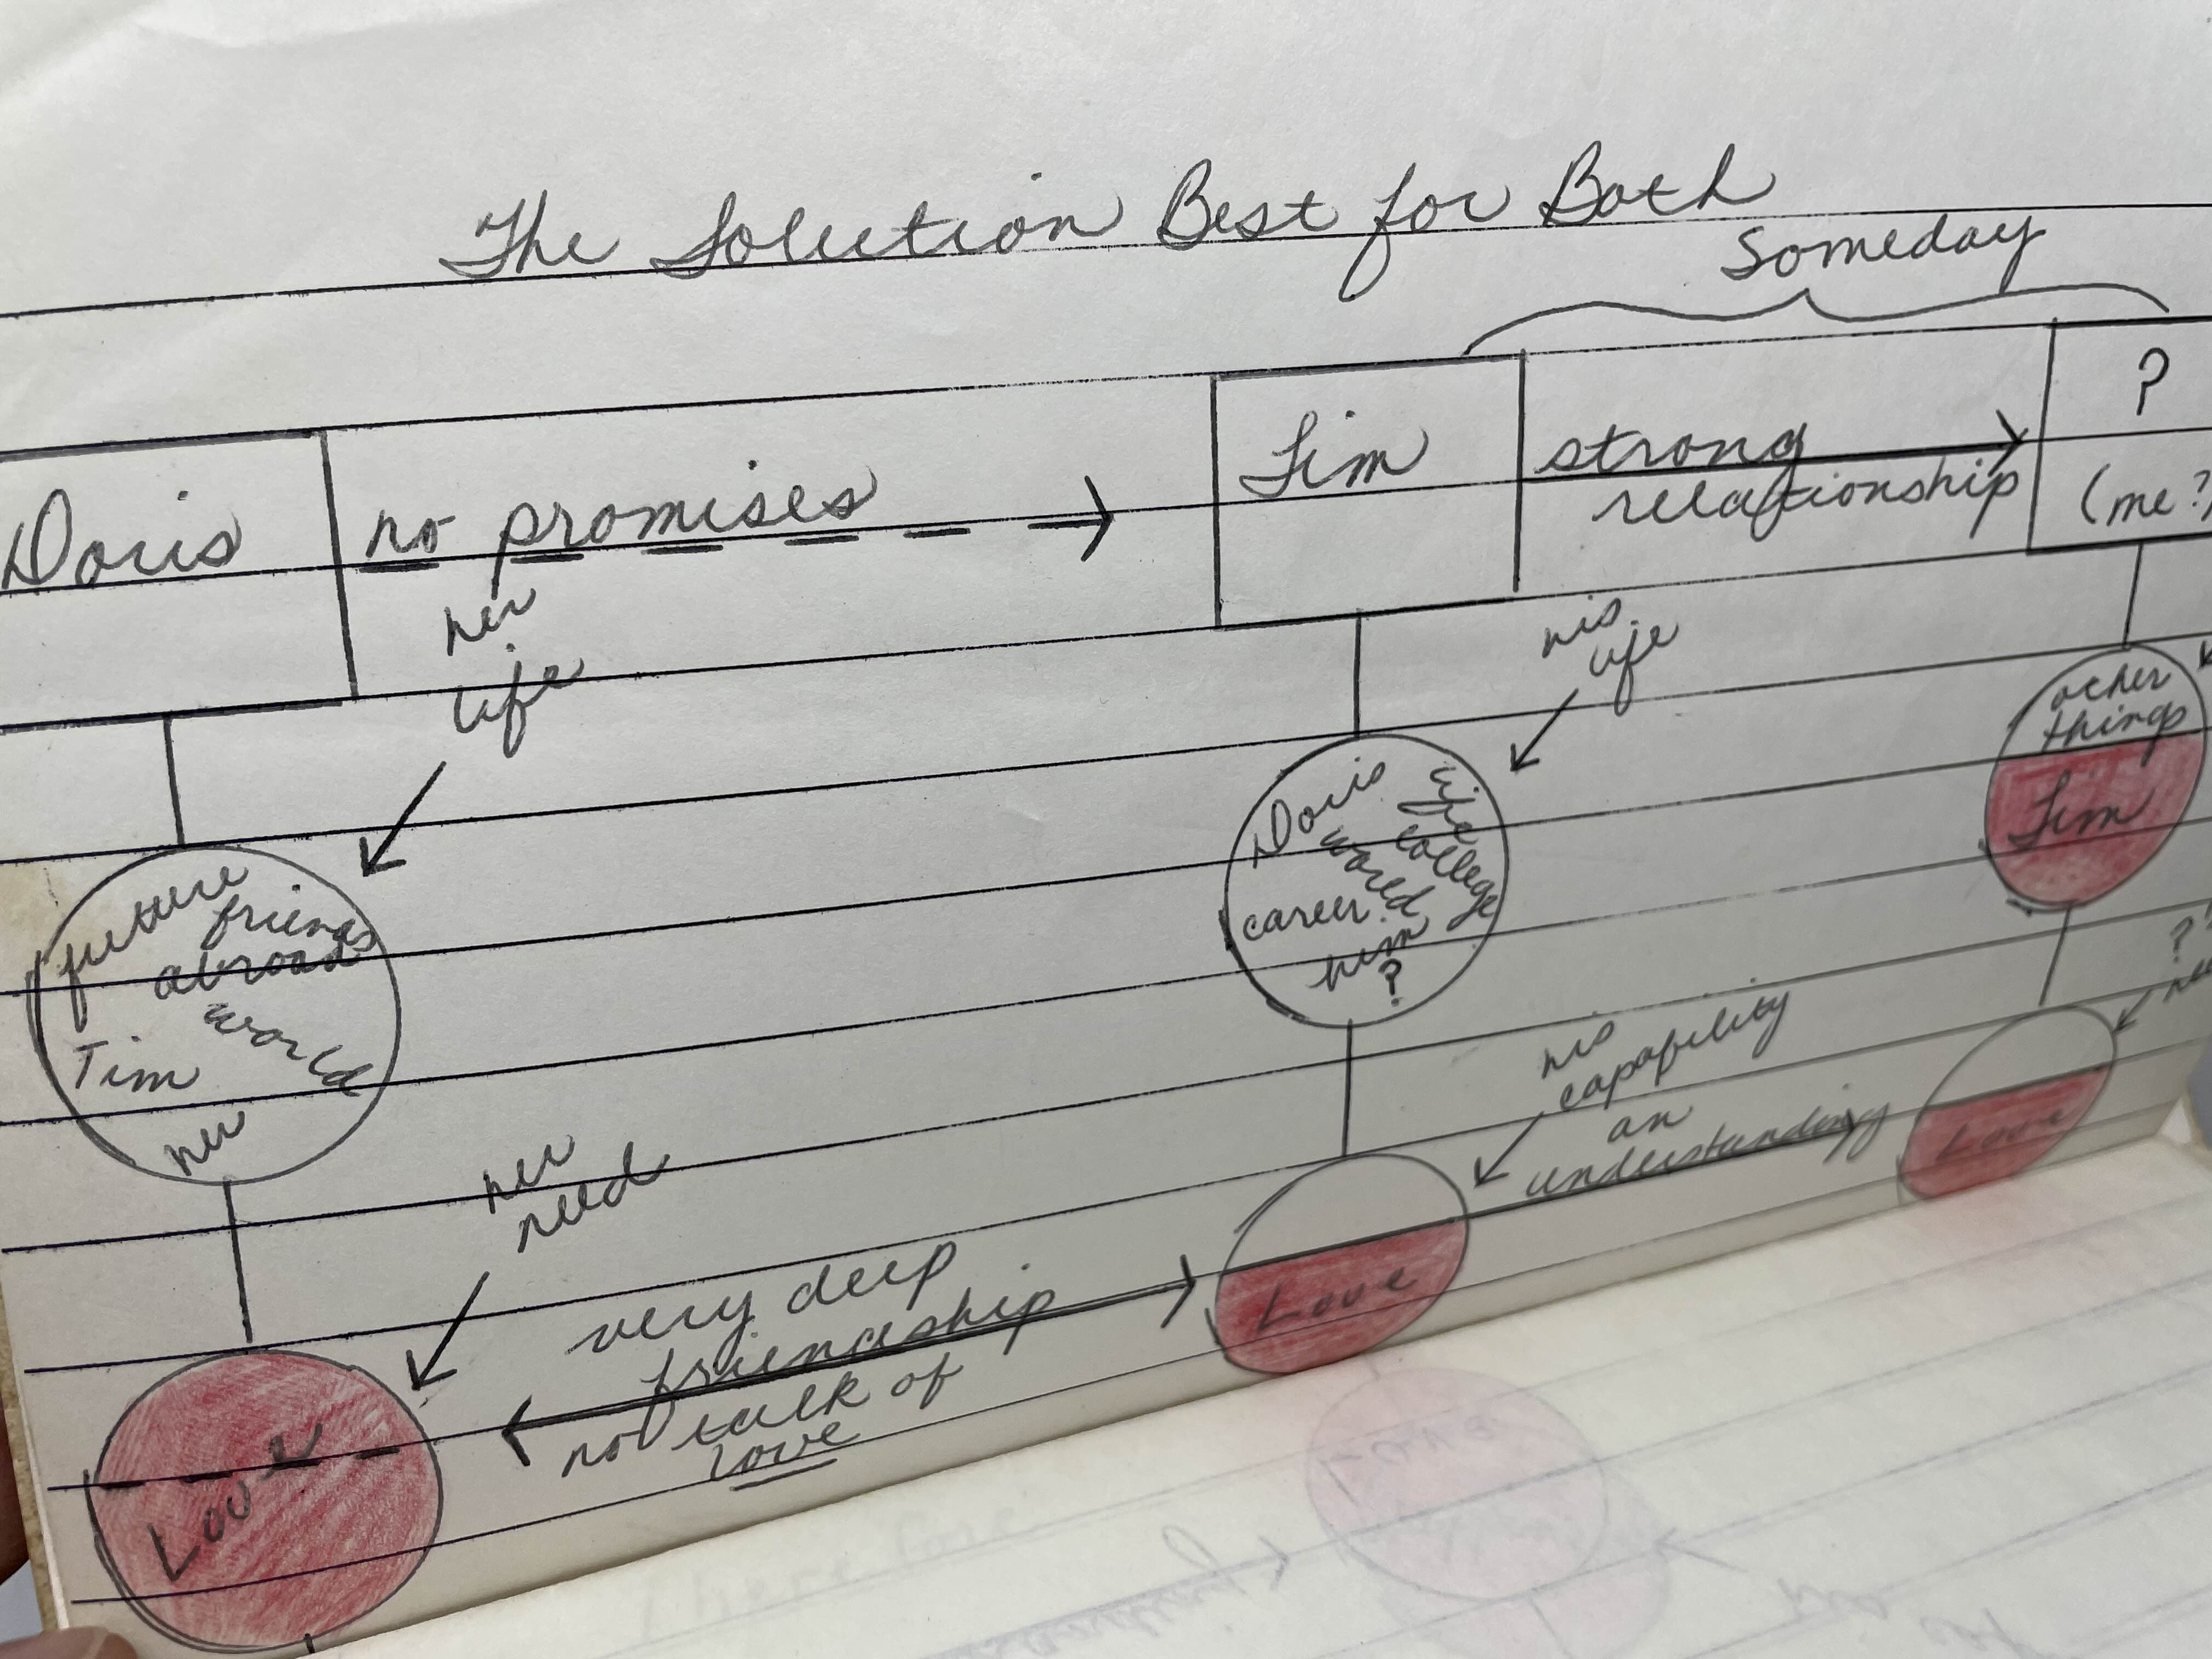 The Solution Best for Both
Someday
Doris
no promises
Tim
strong
relationship
?
(me?)
her
life
his
life
future
friends
abroad
world
Tim
her
Doris
life
college
world
career
him
?
other
things
Tim
her
need
his
capability
an
understanding
?
Love
very deep
friendship
no talk of
love
Love
Love